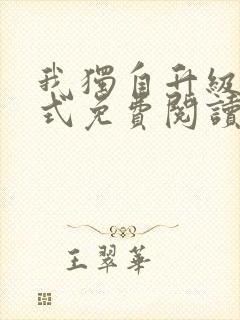 我獨自升級
式免費閱讀
王翠華